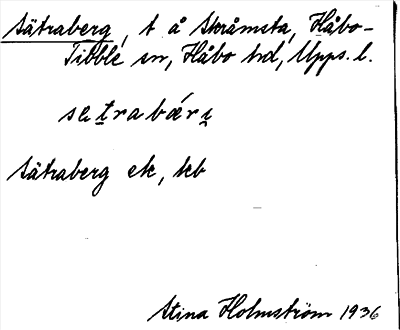 Sätraberg, t. å Skråmsta, Håbo-
Tibble sn, Håbo hd, Upps. l.
sætrabǽrı
Sätraberg ek, kb
Stina Holmström 1936